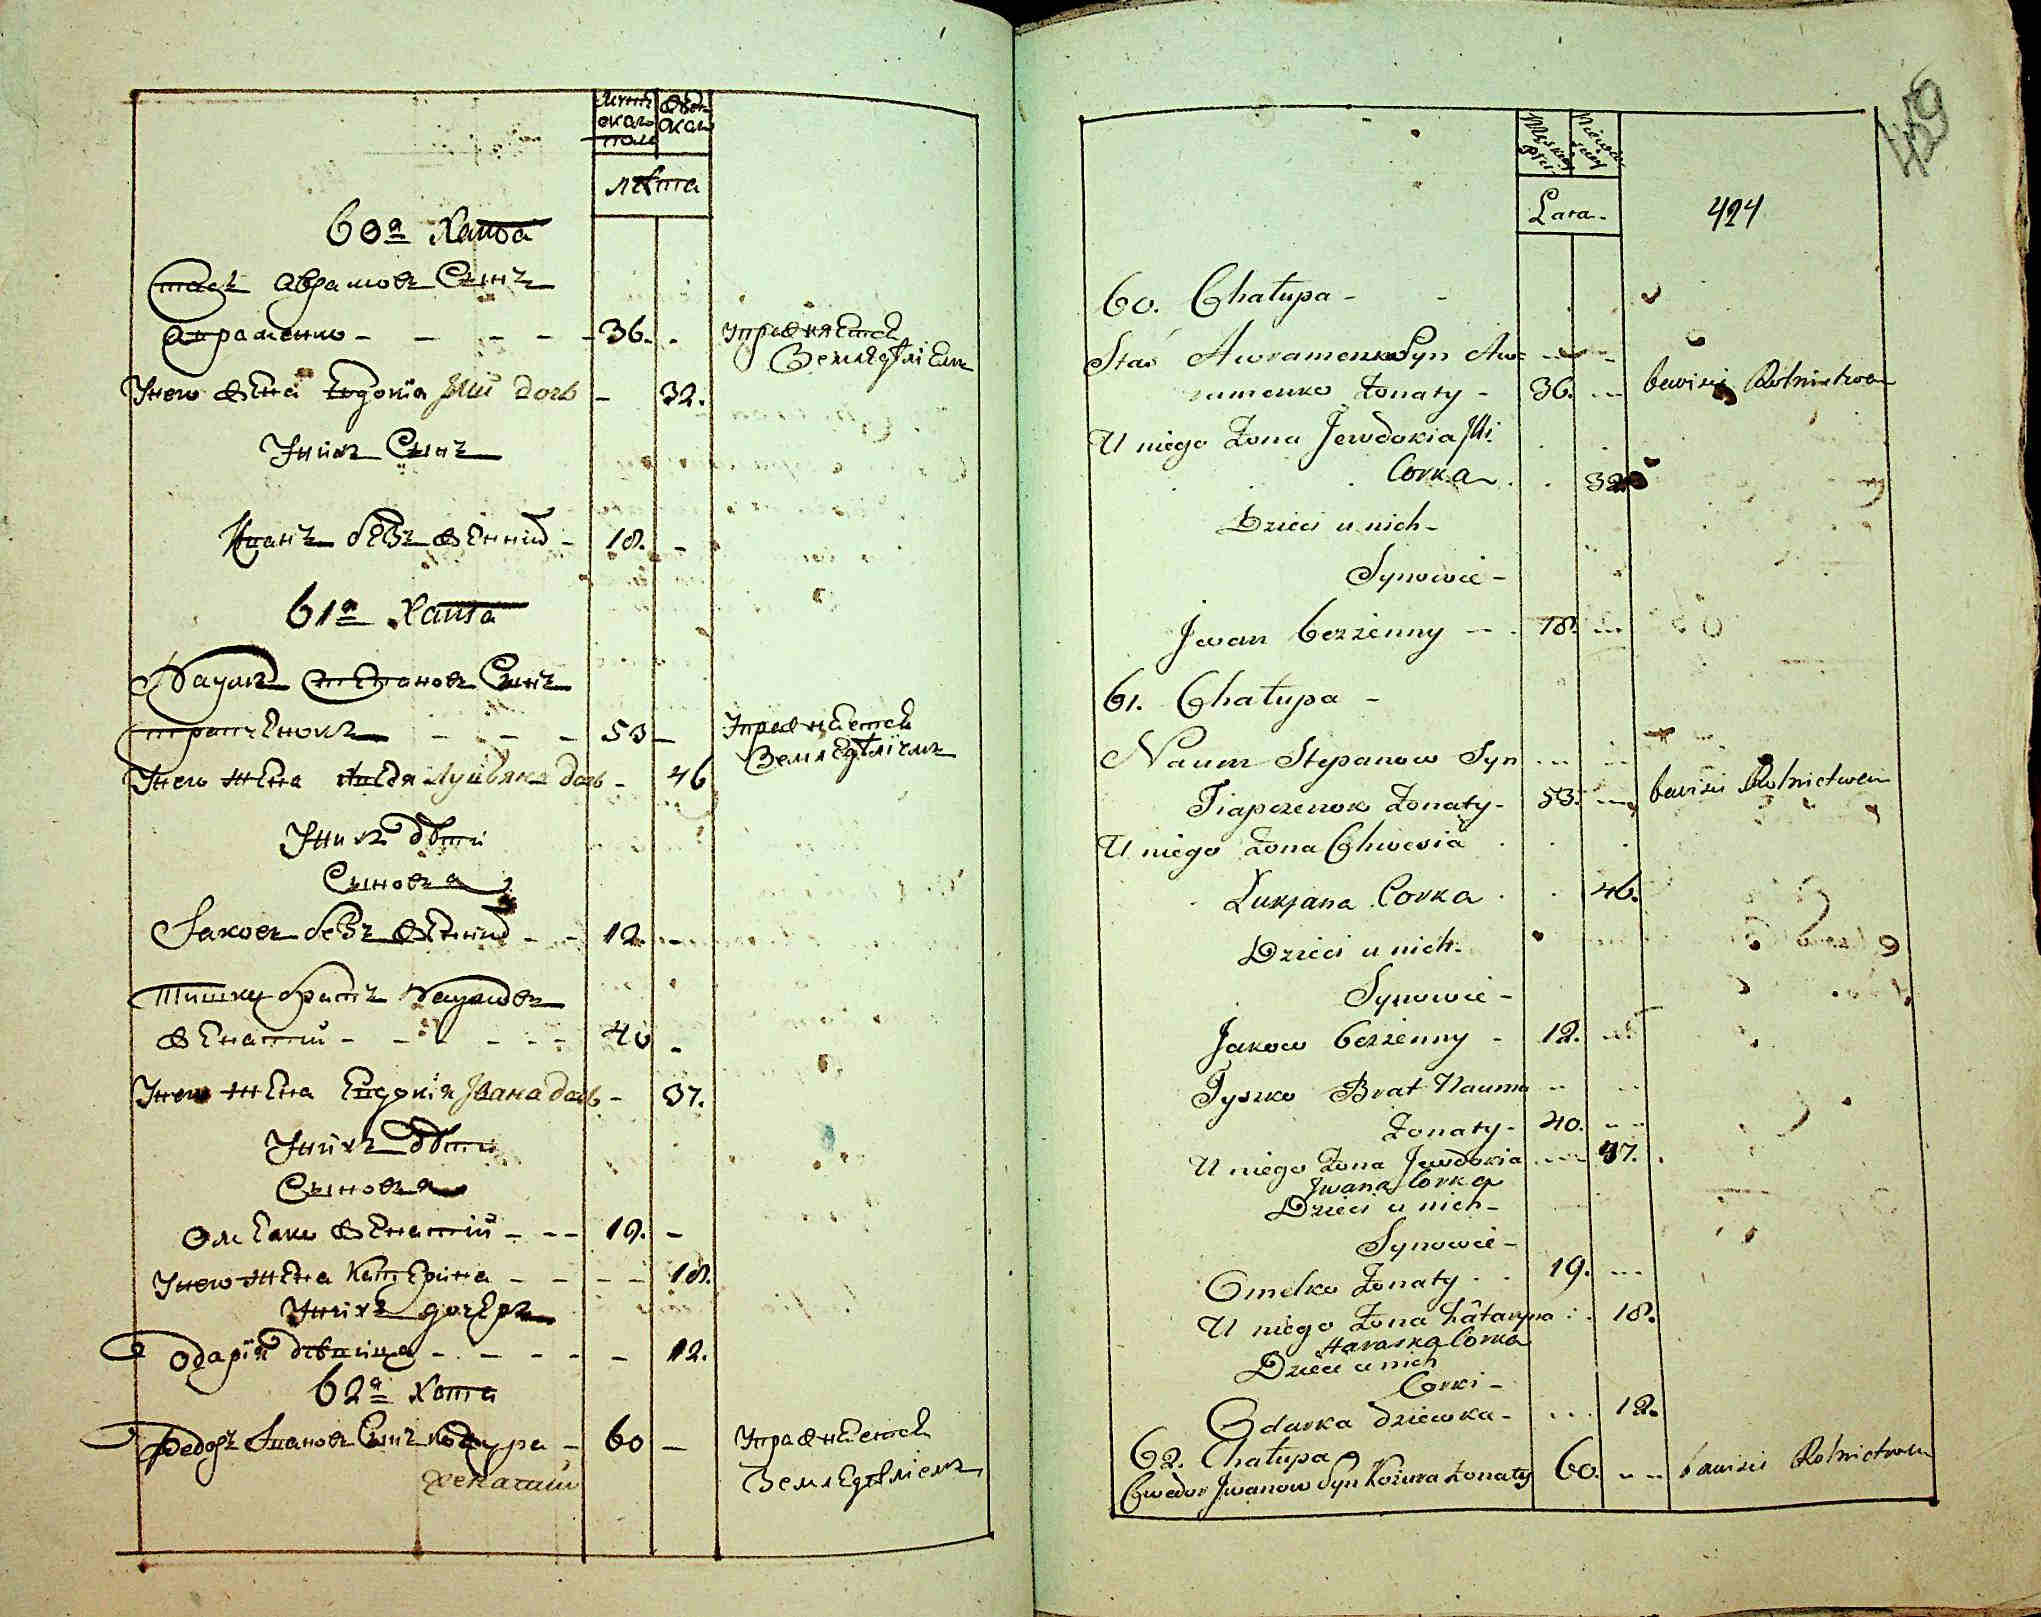 мужеска пола
женскаго
лѣта
60я Хатта
Стась Аврамовъ Сынъ
Авраменко - - - - - 36. -
Упражняется
Земледѣліемъ
Унего жена Евдокіа Іллі дочь - 32.
Унихъ Сынъ
Иванъ безъ женній - 18. -
61я Хатта
Наумъ Степановъ Сынъ
53 -
Упражняется
Земледѣліемъ
Унего жена Лукяна дочь - 46
Унихъ дѣти
Сыновья
Яковъ безъ женній - - 12. -
Тишку братъ Наумовъ
женатій - - - - - - 40 -
Унего жена Евдокія Івана дочь - 37.
Унихъ дѣти
Сыновья
Омелко женатій - - - 19. -
Унего жена Катерина - - - - 18.
Унихъ дочеръ
Одарія дѣвица - - - - - - 12.
62я Хатта
Федоръ Івановъ Сынъ Кожура - 60 -
женатий
Упражняется
Земледѣліемъ
459
Męskiej Płci
Lata.
424
60. Chałupa -
Staś Awramenko Syn Aw=
ramenko Żonaty - 36. --- bawisię Rolnictwem
U niego Żona Jewdokia Illi
Corka 32
Dzieci u nich -
Synowie -
Jwan bezżenny -- 18. ---
61. Chałupa -
Naum Stepanow Syn
Żonaty - 53. --- bawisię Rolnictwem
U niego Żona Chwesia
Łukjana Corka 46.
Dzieci u nich -
Synowie -
Jakow bezżenny - 12. ---
Tyszko Brat Nauma
Żonaty - 40. --
U niego Żona Jewdokia --- 37.
Jwana Corka
Dzieci u nich -
Synowie -
Omelko Żonaty 19. ---
U niego Żona Kataryna 18.
Haraska Corka
Dzieci u nich
Corki -
Odarka dziewka - ... 12.
62. Chałupa
Chwedor Jwanow Syn Kożura Żonaty 60. -- -- bawisię Rolnictwem